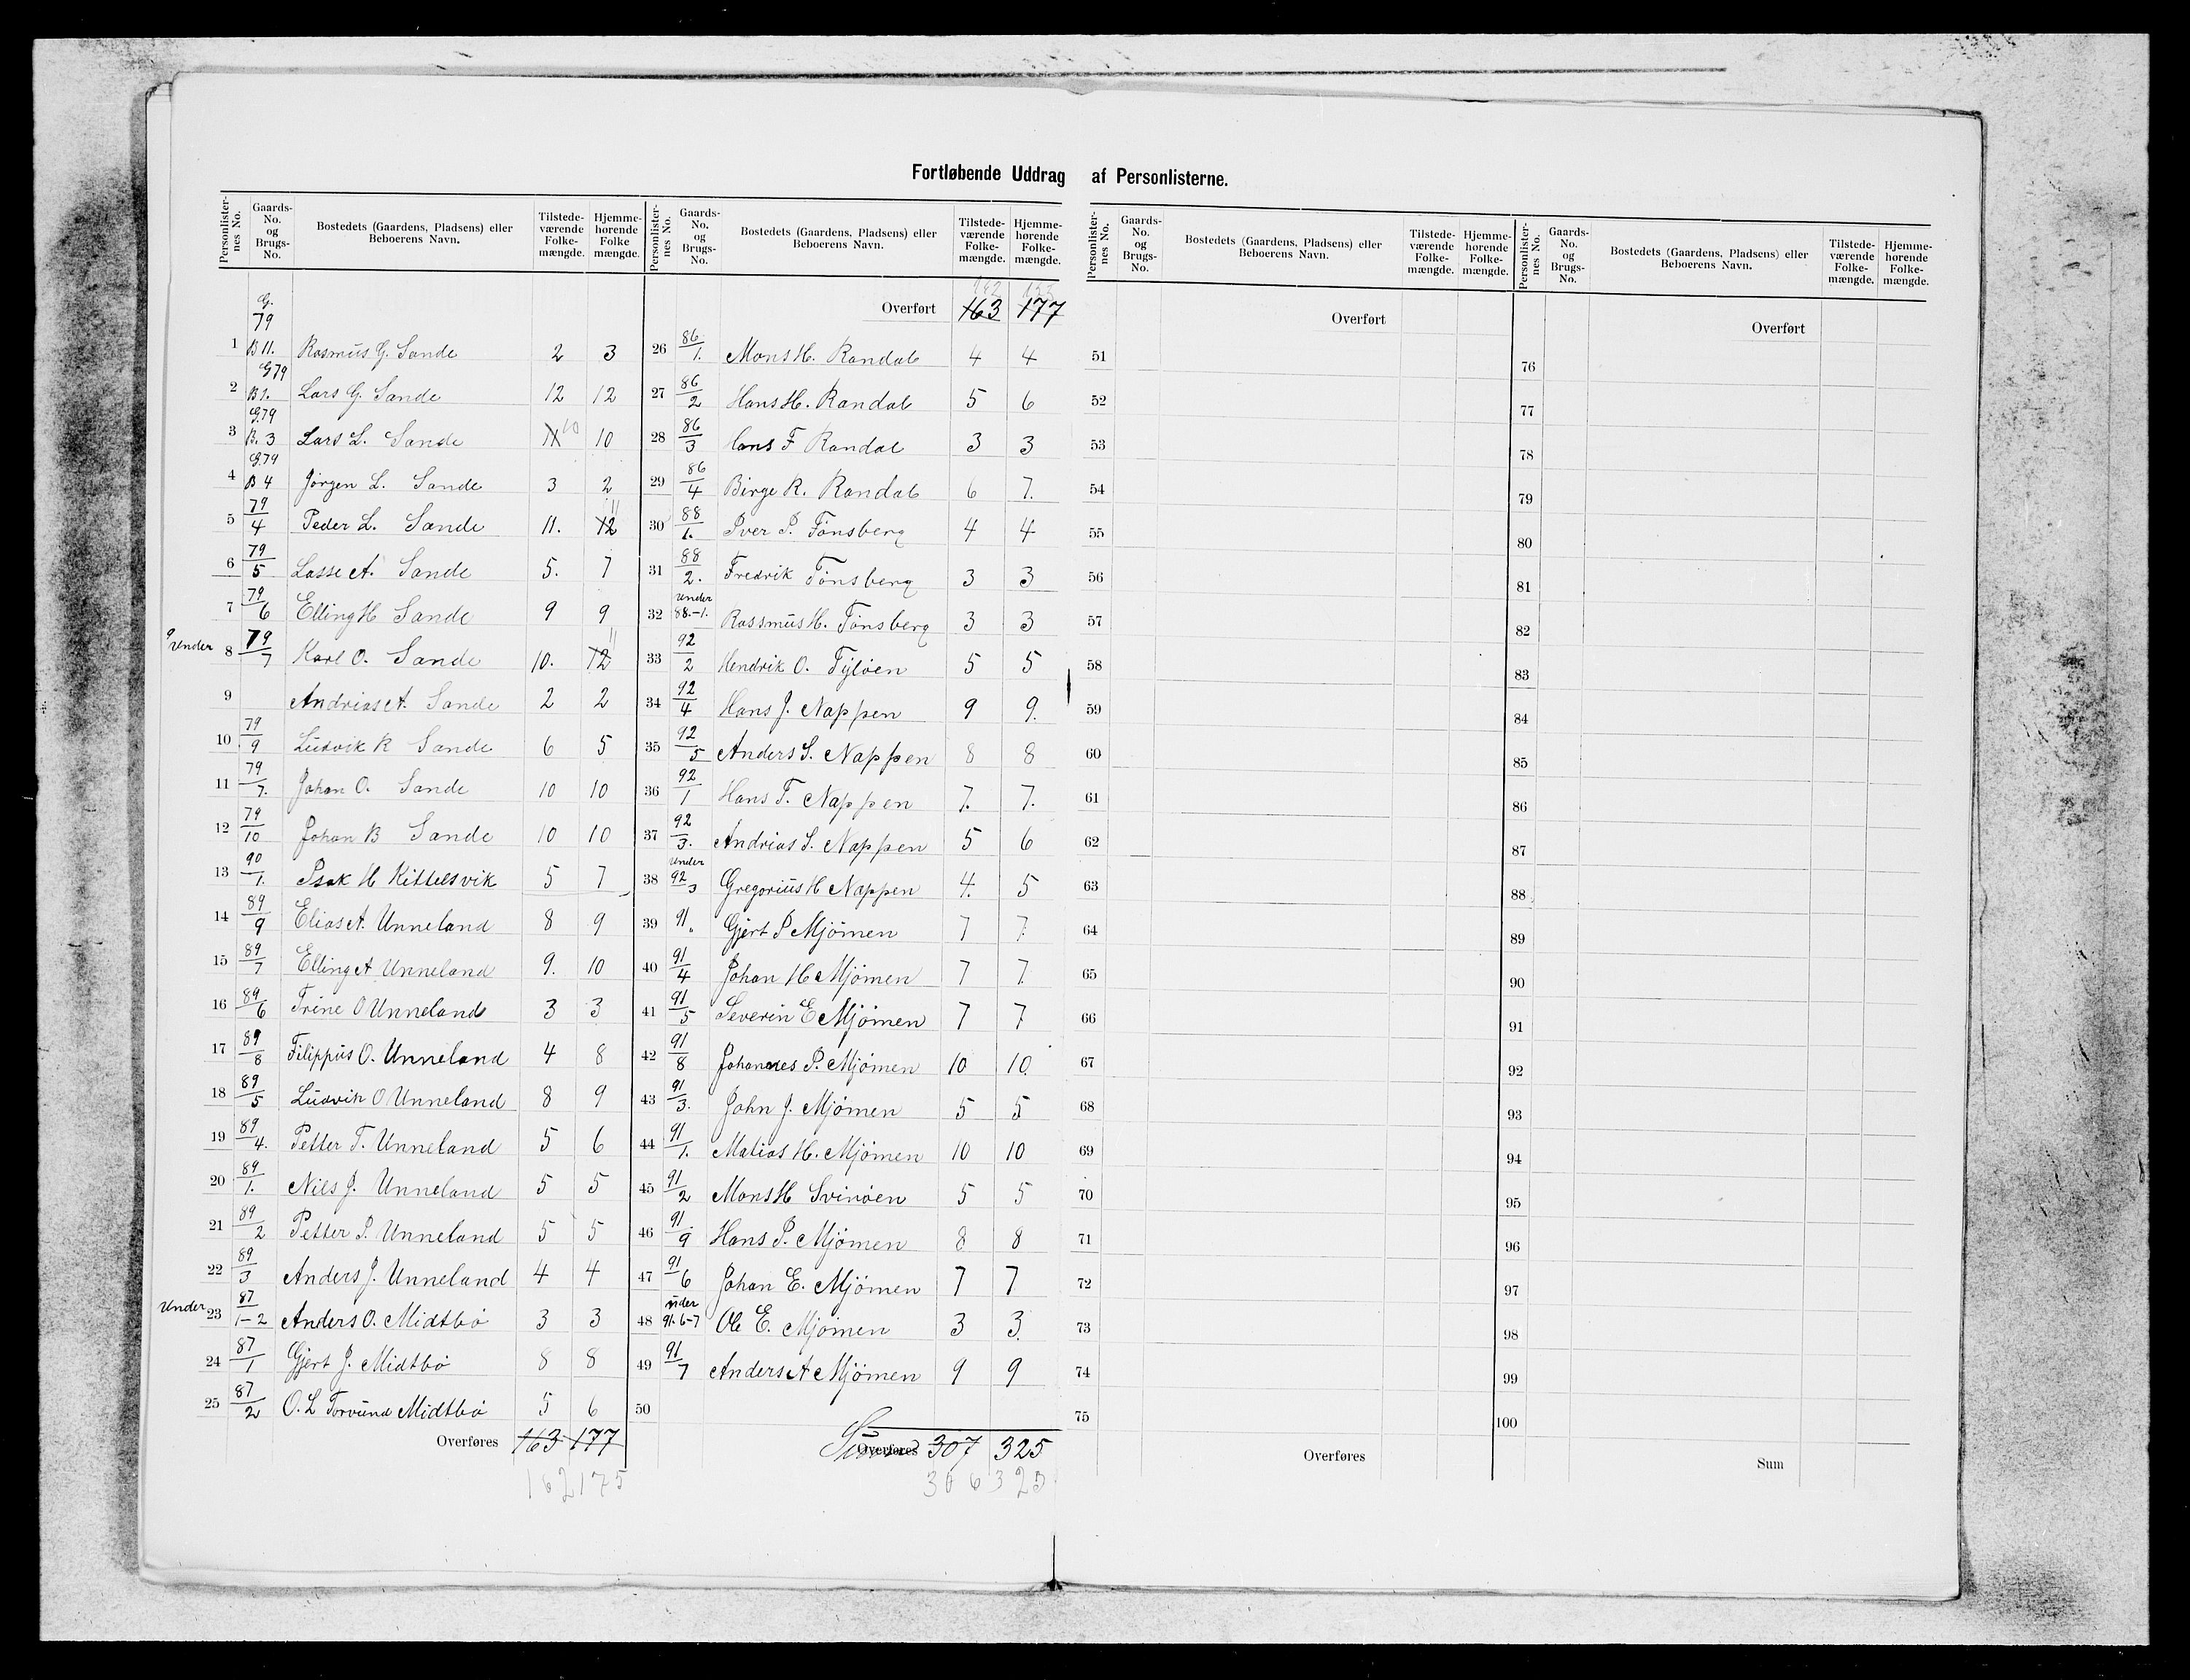 Fortløbende Uddrag af Personlisterne.
Personlisternes No. Gaards-No. og Brugs-No. Bostedets (Gaardens, Pladsens) eller Beboerens Navn. Tilstedeværende Folkemængde. Hjemmehørende Folkemængde.
G. 79
1 B 11. Rasmus G. Sande 2 3
2 G 79 B 1. Lars G. Sande 12 12
3 G. 79 B. 3 Lars L. Sande 11 10 10
4 G. 79 B 4 Jörgen L. Sande 3 2
5 79/4 Peder L. Sande 11. 12 11
6 79/5 Lasse A. Sande 5. 7
7 79/6 Elling H Sande 9 9
Under 8 79/7 Karl O. Sande 10. 12 11
9 Andrias A. Sande 2 2
10 79/9 Ludvik R Sande 6 5
11 79/7. Johan O. Sande 10 10
12 79/10 Johan B Sande 10 10
13 90/1. Isak H Kittelsvik 5 7
14 89/9 Elias A. Unneland 8 9
15 89/7 Elling A Unneland 9. 10
16 89/6 Trine O Unneland 3 3
17 89/8 Filippus O. Unneland 4 8
18 89/5 Ludvik O Unneland 8 9
19 89/4. Petter T. Unneland 5 6
20 89/1. Nils J. Unneland 5 5
21 89/2 Petter P. Unneland 5 5
22 89/3 Anders J. Unneland 4 4
Under 23 87/1-2 Anders O. Midtbö 3 3
24 87/1 Gjert J. Midtbö 8 8
25 87/2 O. L Torvund Midtbö 5 6
Overføres 163 177
162 175
Personlisternes No. Gaards-No. og Brugs-No. Bostedets (Gaardens, Pladsens) eller Beboerens Navn. Tilstedeværende Folkemængde. Hjemmehørende Folkemængde.
Overført 163 177
26 86/1. Mons H. Randal 4 4
27 86/2 Hans H. Randal 5 6
28 86/3 Hans F Randal 3 3
29 86/4 Birge R. Randal 6 7.
30 88/1. Iver P. Tönsberg 4 4
31 88/2. Fredrik Tönsberg 3 3
32 Under 88.-1. Rassmus H. Tönsberg 3 3
33 92/2 Hendrik O. Tylöen 5 5
34 92/4 Hans J. Nappen 9 9.
35 92/5 Anders S. Nappen 8 8
36 92/1 Hans T. Nappen 7. 7.
37 92/3. Andrias S. Nappen 5 6
38 Under 92/3 Gregorius H Nappen 4. 5
39 91. Gjert P Mjömen 7 7.
40 91/4 Johan H Mjömen 7 7.
41 91/5 Severin E Mjömen 7 7
42 91/8 Johannes P. Mjömen 10 10.
43 91/3. John J. Mjömen 5 5
44 91/1. Matias H. Mjömen 10 10
45 91/2 Mons H Svinöen 5 5
46 91/9 Hans P. Mjömen 8 8
47 91/6 Johan E. Mjömen 7 7
48 uder 91. 6-7 Ole E. Mjömen 3 3.
49 91/7 Anders A Mjömen 9 9
50
Overføres 307 325
306 325
Personlisternes No. Gaards-No. og Brugs-No. Bostedets (Gaardens, Pladsens) eller Beboerens Navn. Tilstedeværende Folkemængde. Hjemmehørende Folkemængde.
Overført
51
52
53
54
55
56
57
58
59
60
61
62
63
64
65
66
67
68
69
70
71
72
73
74
75
Overføres
Personlisternes No. Gaards-No. og Brugs-No. Bostedets (Gaardens, Pladsens) eller Beboerens Navn. Tilstedeværende Folkemængde. Hjemmehørende Folkemængde.
Overført
76
77
78
79
80
81
82
83
84
85
86
87
88
89
90
91
92
93
94
95
96
97
98
99
100
Sum